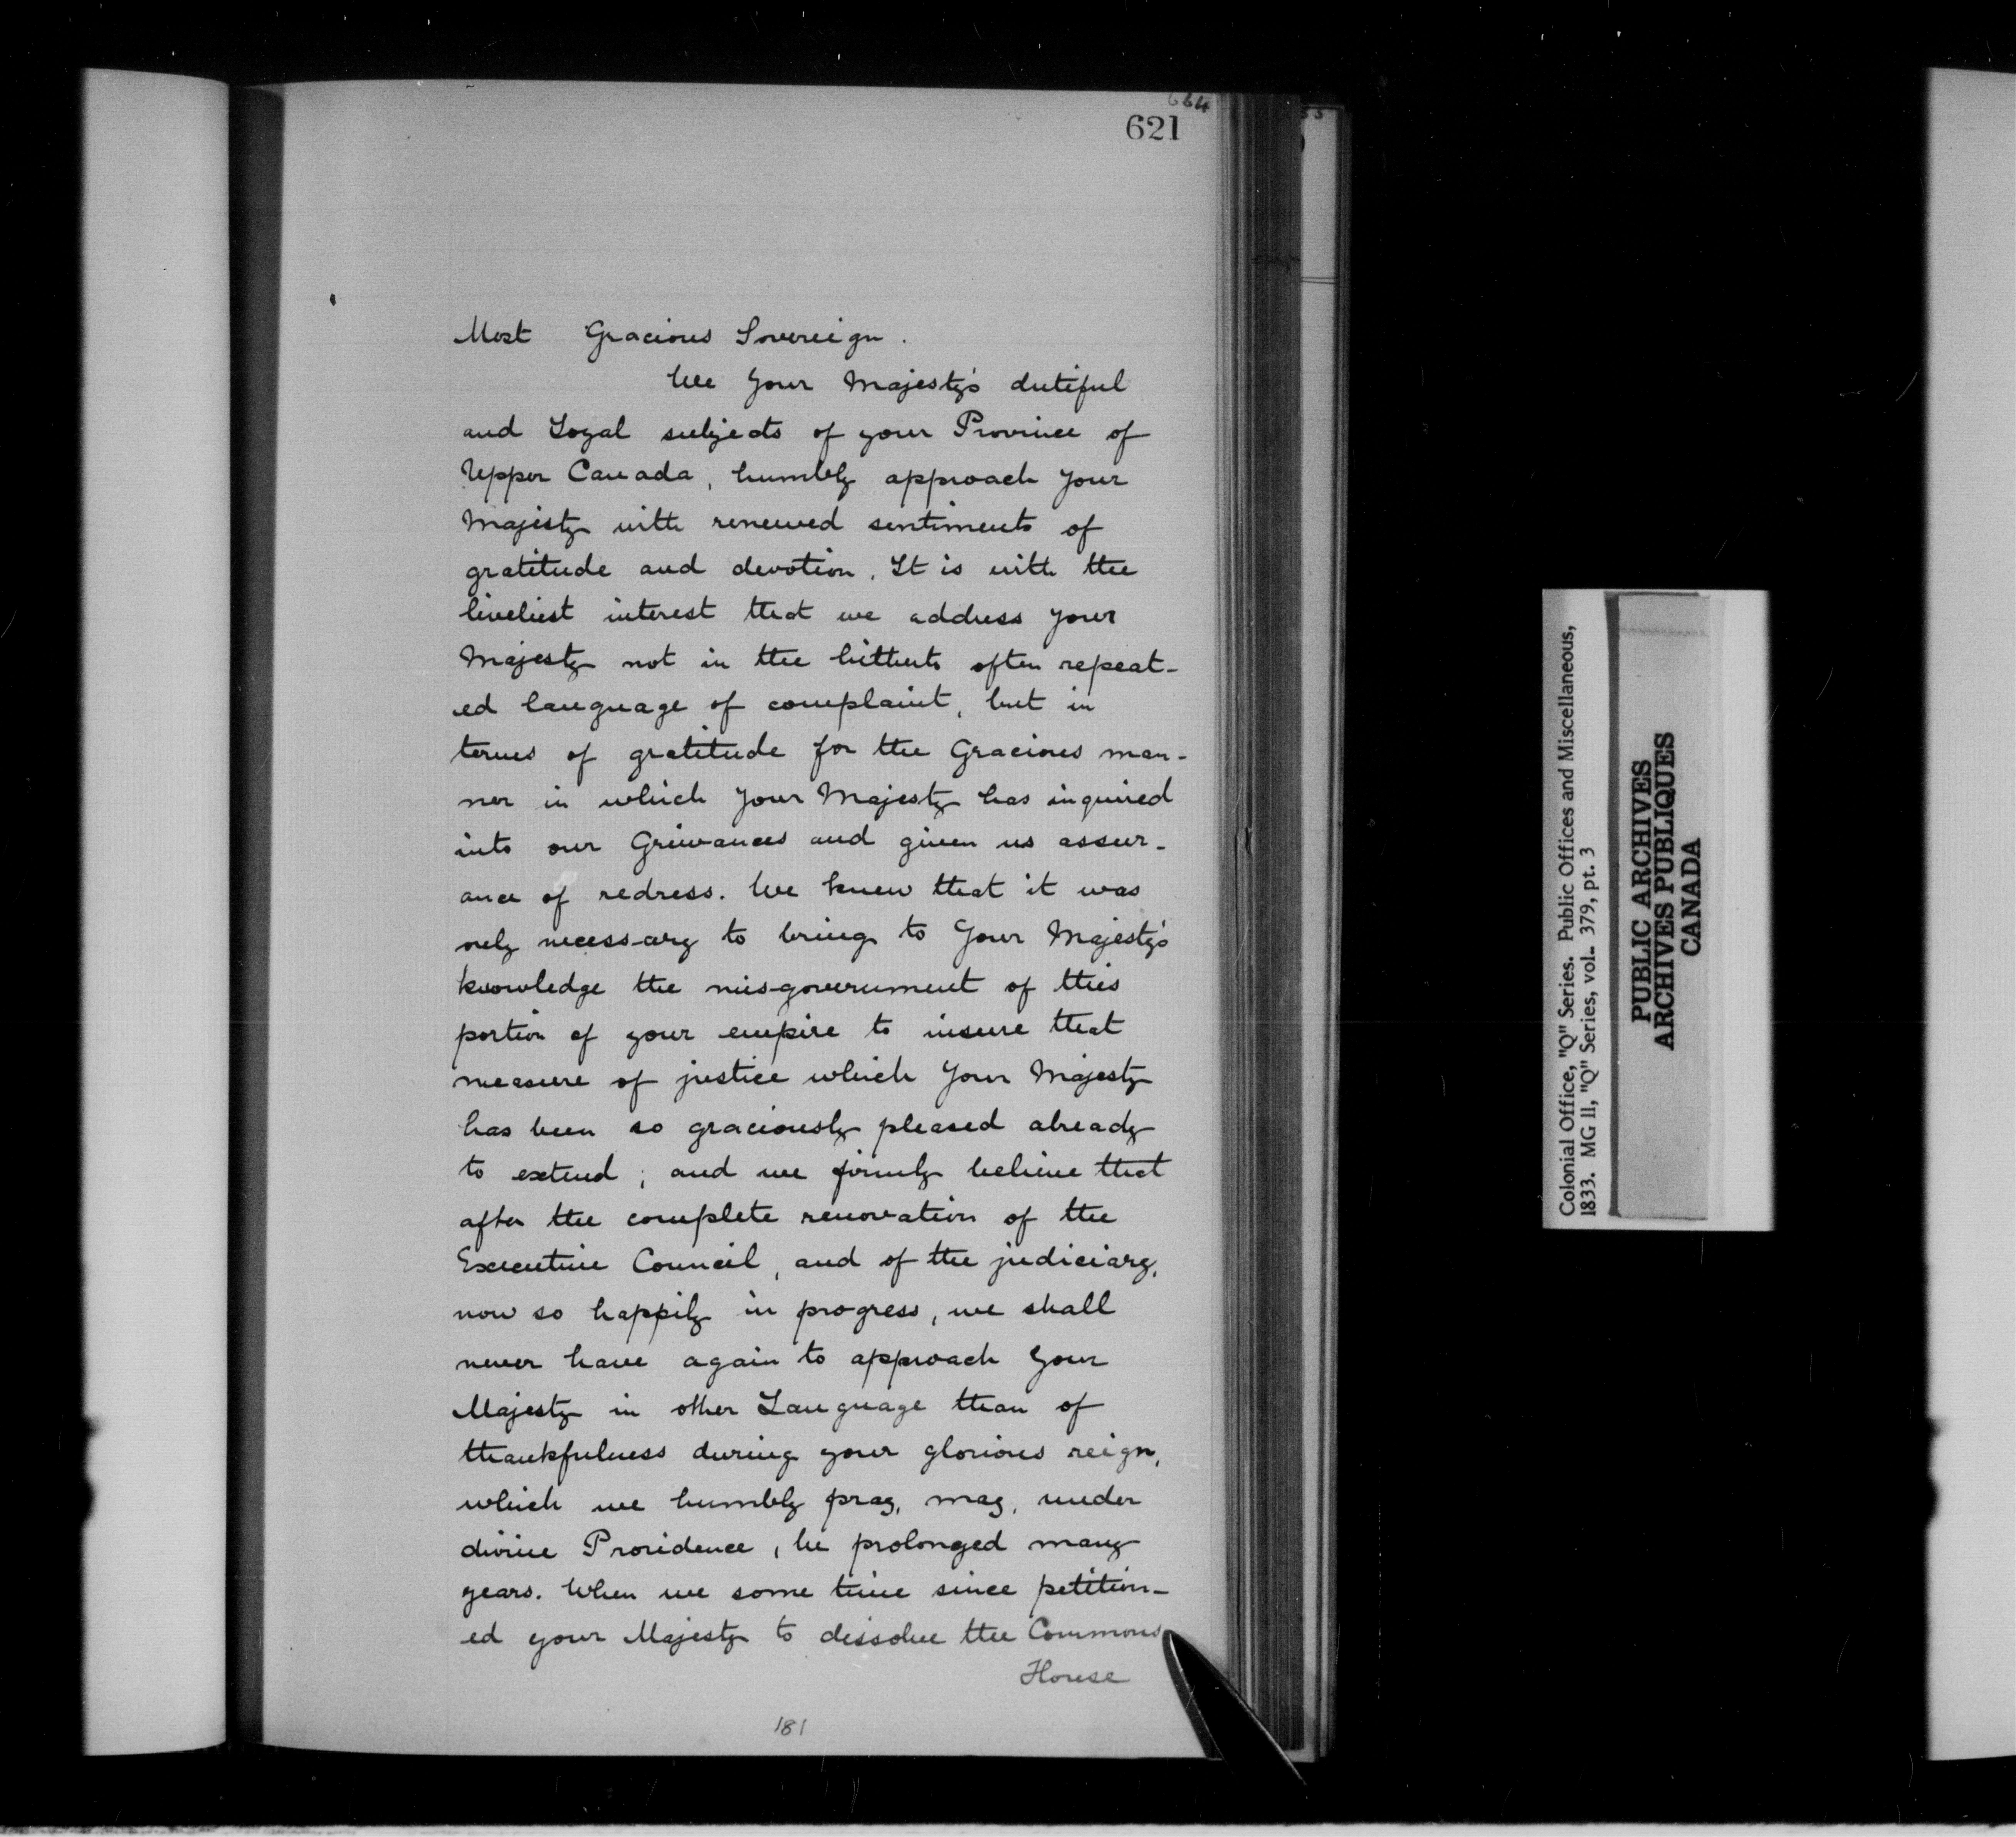 664
621
Most Gracious Sovereign.
We Your Majesty's dutiful
and Loyal subjects of your Province of
Upper Canada, humbly approach Your
Majesty with renewed sentiments of
gratitude and devotion. It is with the
liveliest interest that we address your
Majesty not in the hitherto often repeat-
ed language of complaint, but in
terms of gratitude for the Gracious man-
ner in which Your Majesty has inquired
into our Grievances and given us assur-
ance of redress. We knew that it was
only necessary to bring to Your Majesty's
knowledge the mis-government of this
portion of your empire to insure that
measure of justice which Your Majesty
has been so graciously pleased already
to extend; and we firmly believe that
after the complete renovation of the
Executive Council, and of the judiciary,
now so happily in progress, we shall
never have again to approach Your
Majesty in other Language than of
thankfulness during your glorious reign,
which we humbly pray, may, under
divine Providence, be prolonged many
years. When we some time since petition-
ed your Majesty to dissolve the Commons
House
181
Colonial Office, "Q" Series. Public Offices and Miscellaneous,
1833. MG 11, "Q" Series, vol. 379, pt. 3
PUBLIC ARCHIVES
ARCHIVES PUBLIQUES
CANADA